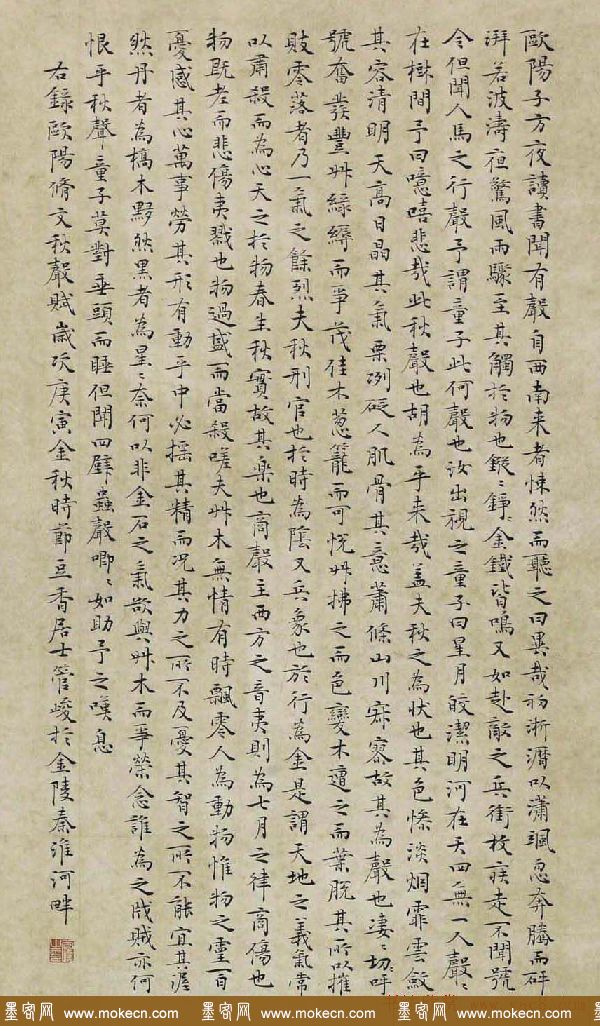 歐陽子方夜讀書聞有聲自西南来者悚然而聽之曰異哉初淅瀝以瀟颯忽奔騰而砰
湃若波濤夜驚風雨驟至其觸於物也鏦〻錚〻金鐵皆鳴又如赴敵之兵銜枚疾走不聞號
令但聞人馬之行聲予謂童子此何聲也汝出視之童子曰星月皎潔明河在天四無一人聲〻
在樹間予曰噫嘻悲哉此秋聲也胡為乎来哉盖夫秋之為狀也其色慘淡烟霏雲斂
其容清明天高日晶其氣栗冽砭人肌骨其意蕭條山川寂寥故其為聲也淒〻切〻呼
號奮發豐艸綠縟而爭茂佳木葱籠而可悅艸拂之而色變木遭之而葉脫其所以摧
敗零落者乃一氣之餘烈夫秋刑官也於時為陰又兵象也於行為金是謂天地之義氣常
以肅殺而為心天之於物春生秋實故其樂也商聲主西方之音夷則為七月之律商傷也
物既老而悲傷夷戮也物過盛而當殺嗟夫艸木無情有時飄零人為動物惟物之靈百
憂感其心萬事勞其形有動乎中必搖其精而况其力之所不及憂其智之所不能宜其渥
然丹者為槁木黟然黑者為星〻奈何以非金石之氣欲與艸木而爭榮念誰為之戕賊亦何
恨乎秋聲童子莫對垂頭而睡但聞四壁蟲聲唧〻如助予之嘆息
右錄歐陽脩文秋聲賦歲次庚寅金秋時節豆香居士管峻於金陵秦淮河畔
墨客网 www.mokecn.com 墨客网 www.mokecn.com 墨客网 www.mokecn.com